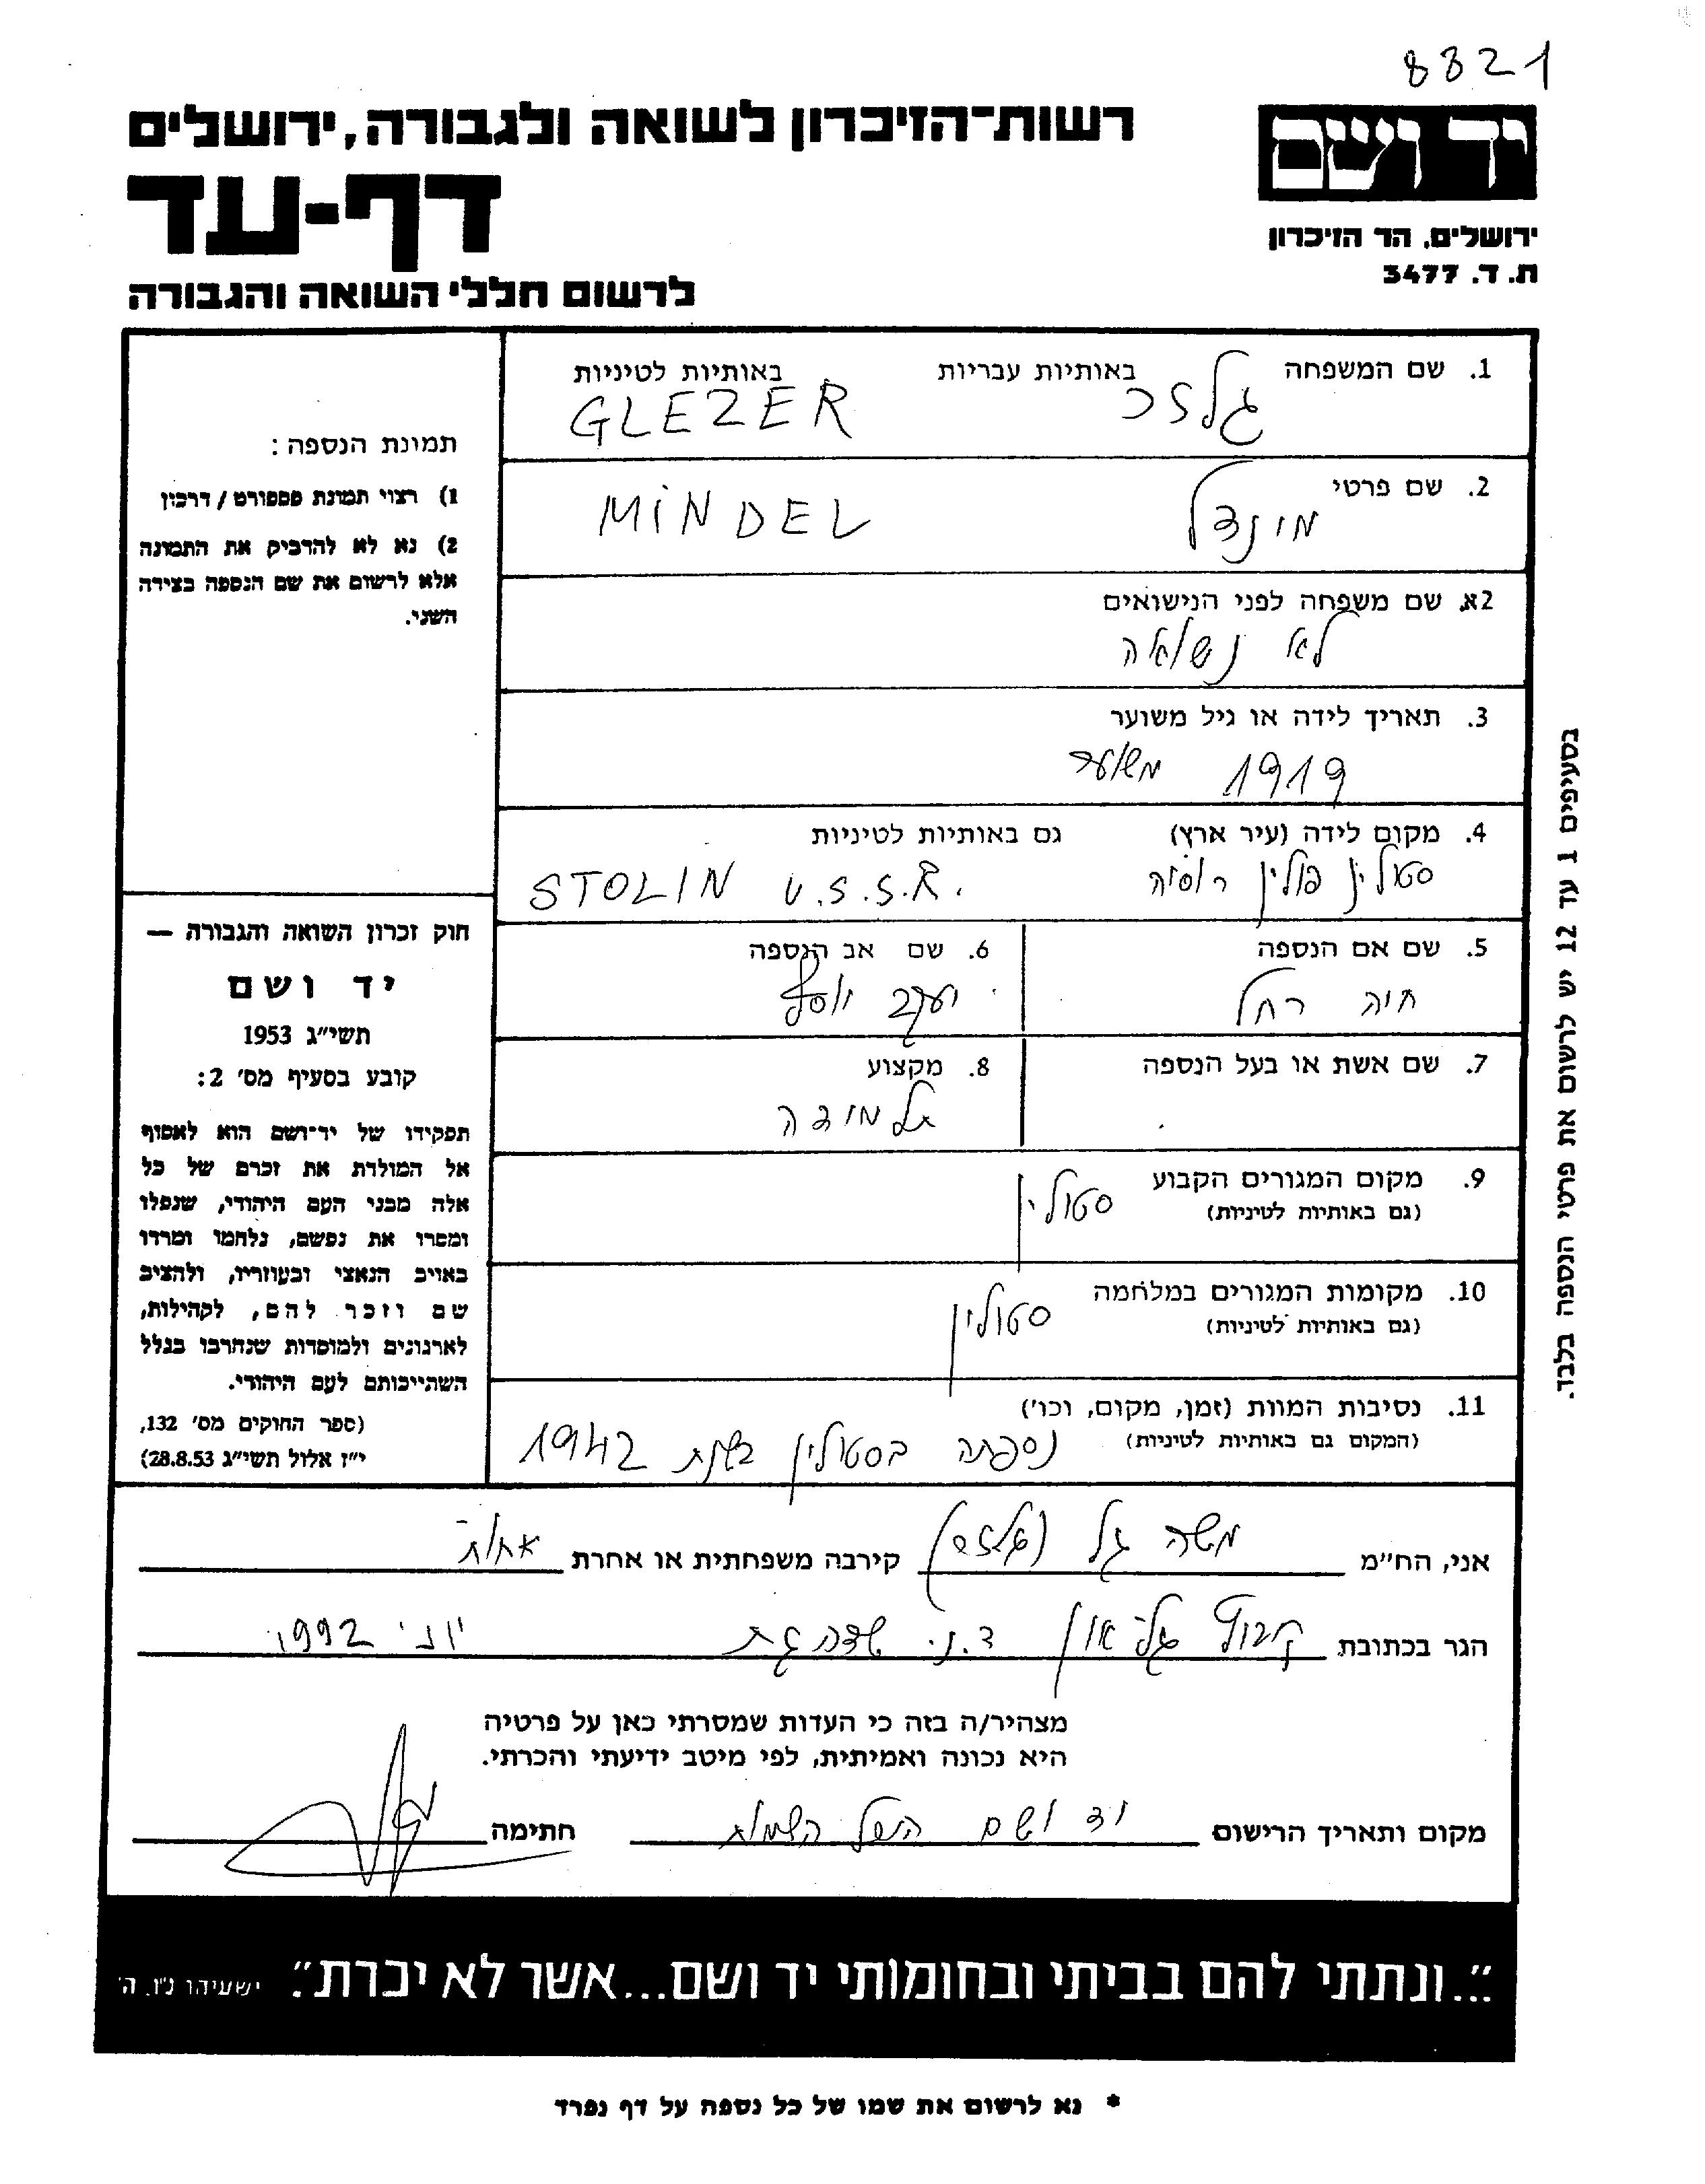 8821
רשות־הזיכרון לשואה ולגבורה, ירושלים
יד ושם
דף-עד
ירושלים, הר הזיכרון
ת. ד. 3477
לרשום חללי השואה והגבורה
1. שם המשפחה באותיות עבריות באותיות לטיניות
גלזר GLEZER
2. שם פרטי
מינדל MINDEL
2א. שם משפחה לפני הנישואים
לא נשואה
3. תאריך לידה או גיל משוער
1919 משוער
4. מקום לידה (עיר ארץ) גם באותיות לטיניות
סטולין פולין רוסיה STOLIN U.S.S.R.
5. שם אם הנספה 6. שם אב הנספה
חיה רחל יעקב יוסף
7. שם אשת או בעל הנספה 8. מקצוע
9. מקום המגורים הקבוע
(גם באותיות לטיניות)
סטולין
10. מקומות המגורים במלחמה
(גם באותיות לטיניות)
סטולין
11. נסיבות המוות (זמן, מקום, וכו')
(המקום גם באותיות לטיניות)
נספתה בסטולין בשנת 1942
תמונת הנספה:
1) רצוי תמונת פספורט / דרכון
2) נא לא להדביק את התמונה
אלא לרשום את שם הנספה בצידה
השני.
חוק זכרון השואה והגבורה —
יד ושם
תשי״ג 1953
קובע בסעיף מס׳ 2:
תפקידו של יד־ושם הוא לאסוף
אל המולדת את זכרם של כל
אלה מבני העם היהודי, שנפלו
ומסרו את נפשם, נלחמו ומרדו
באויב הנאצי ובעוזריו, ולהציב
שם וזכר להם, לקהילות,
לארגונים ולמוסדות שנחרבו בגלל
השתייכותם לעם היהודי.
(ספר החוקים מס׳ 132,
י״ז אלול תשי״ג 28.8.53)
בסעיפים 1 עד 12 יש לרשום את פרטי הנספה בלבד.
אני, הח״מ משה גל (גלזר) קירבה משפחתית או אחרת אחות
הגר בכתובת קיבוץ גל-און ד.נ. שדה גת יוני 1992
מצהיר/ה בזה כי העדות שמסרתי כאן על פרטיה
היא נכונה ואמיתית, לפי מיטב ידיעתי והכרתי.
מקום ותאריך הרישום יד ושם היכל השמות חתימה
״...ונתתי להם בביתי ובחומותי יד ושם...אשר לא יכרת״. ישעיהו נ״ו, ה׳
* נא לרשום את שמו של כל נספה על דף נפרד